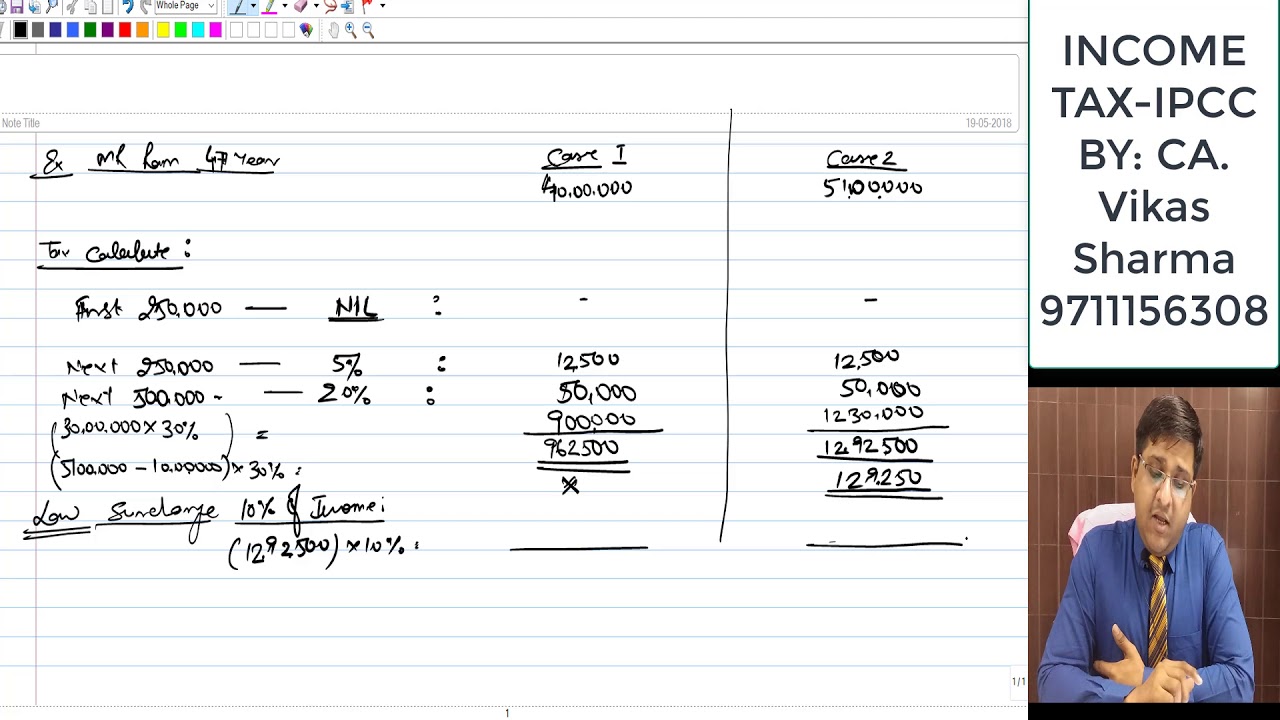 Whole Page
Note Title
19-05-2018
Ex Mr Ram 47 Year
Case I
Case 2
40,00,000
51,00,000
Tax Calculate :
First 250,000 — NIL : - -
Next 250,000 — 5% : 12,500 12,500
Next 500,000 - — 20% : 50,000 50,000
(30,00,000 x 30%) = 900,000 1230,000
962500 12,92,500
(5100,000 - 10,00,000) x 30% :
x 129,250
Surcharge 10% of Income :
(12,92,500) x 10% :
1/1
1
INCOME
TAX-IPCC
BY: CA.
Vikas
Sharma
9711156308